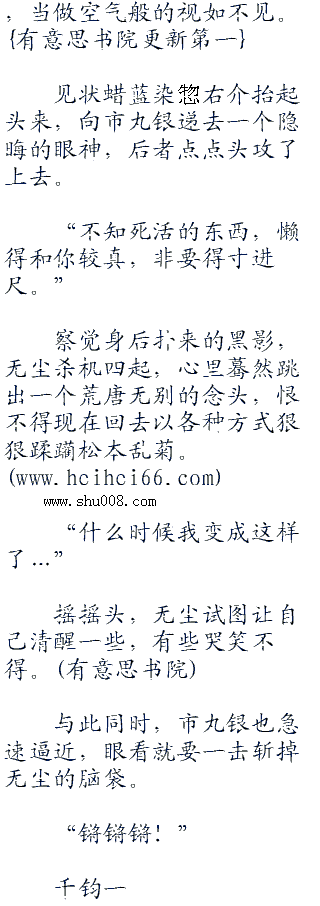 ，当做空气般的视如不见。
{有意思书院更新第一}
见状蜡蓝染惣右介抬起
头来，向市丸银递去一个隐
晦的眼神，后者点点头攻了
上去。
“不知死活的东西，懒
得和你较真，非要得寸进
尺。”
察觉身后扑来的黑影，
无尘杀机四起，心里蓦然跳
出一个荒唐无别的念头，恨
不得现在回去以各种方式狠
狠蹂躏松本乱菊。
(www.hcihci66.com)
www.shu008.com
“什么时候我变成这样
了…”
摇摇头，无尘试图让自
己清醒一些，有些哭笑不
得。(有意思书院)
与此同时，市丸银也急
速逼近，眼看就要一击斩掉
无尘的脑袋。
“锵锵锵！”
千钧一